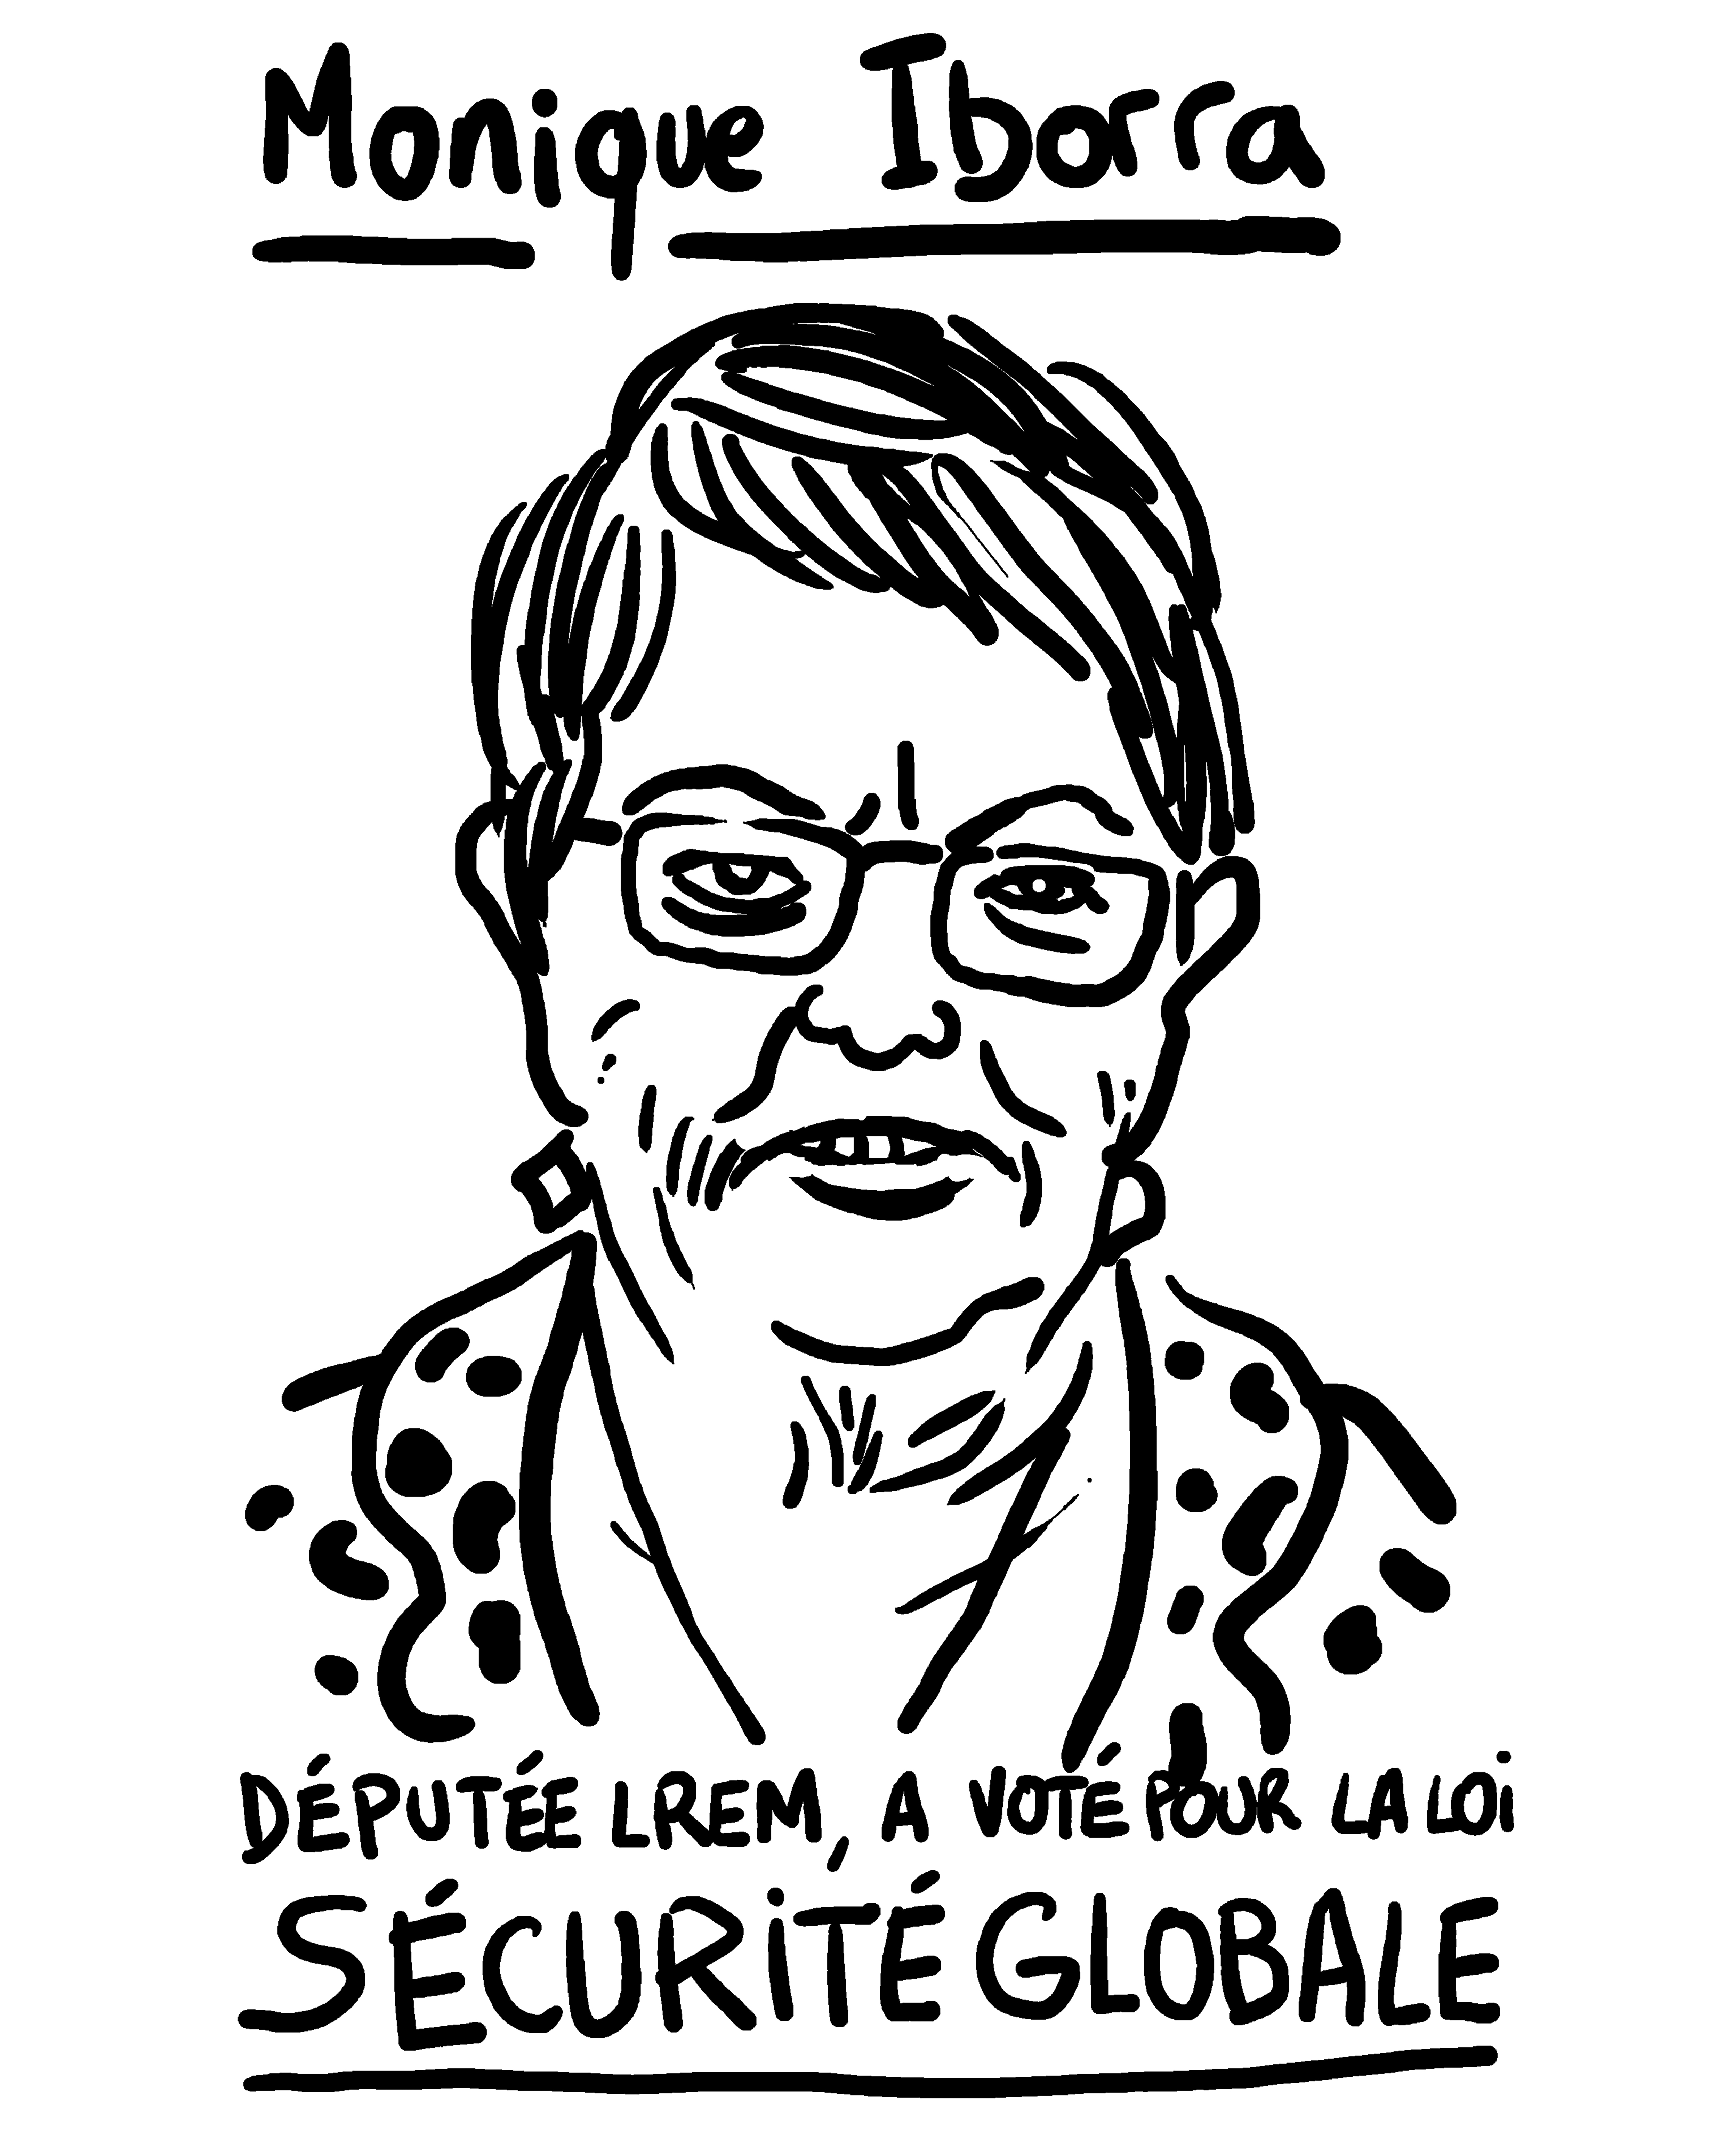 Monique Iborra
DÉPUTÉE LREM, A VOTÉ POUR LA LOI
SÉCURITÉ GLOBALE